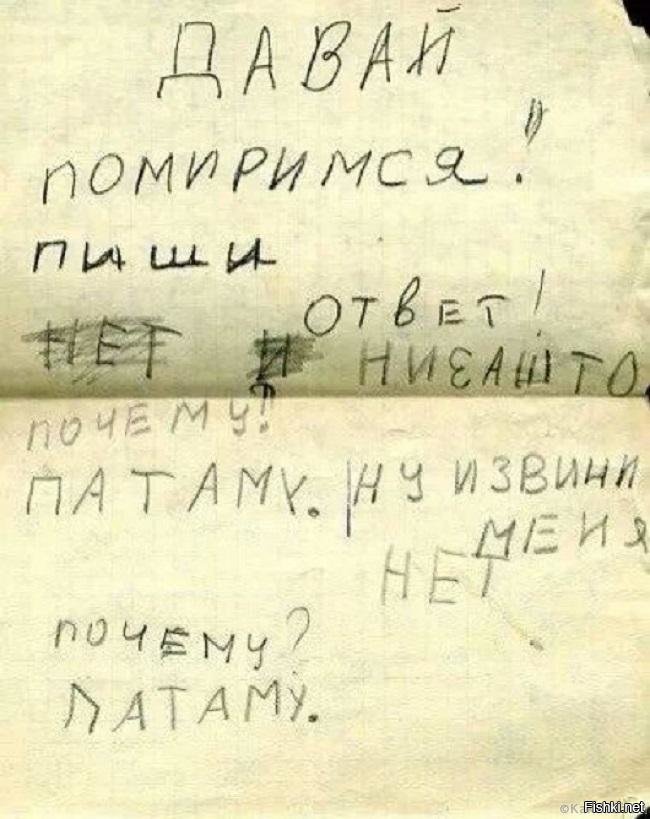 ДАВАЙ
ПОМИРИМСЯ!
ПИШИ
ОТВЕТ!
НЕТ И НИЗАШТО
ПОЧЕМУ?
ПАТАМУ. НУ ИЗВИНИ
МЕНЯ
НЕТ
ПОЧЕМУ?
ПАТАМУ.
Fishki.net